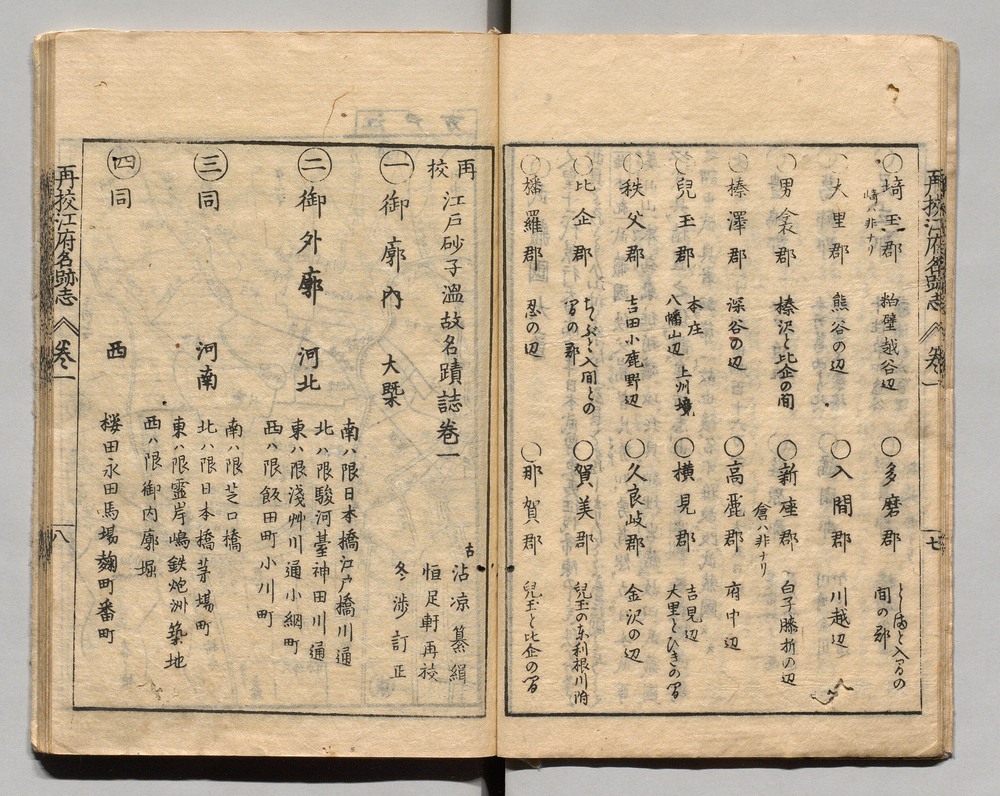 再挍江府名跡志 巻一
七
○埼玉郡 粕壁越谷辺
崎ハ非ナリ
○多磨郡 としまと入間の間の郡
○大里郡 熊谷の辺
○入間郡 川越辺
○男衾郡 榛沢と比企の間
○新座郡 白子膝折の辺
倉ハ非ナリ
○榛澤郡 深谷の辺
○高麗郡 府中辺
○兒玉郡 本庄 八幡山辺 上州境
○横見郡 吉見辺 大里とひきの間
○秩父郡 吉田小鹿野辺
○久良岐郡 金沢の辺
○比企郡 ちゝぶと入間との間の郡
○賀美郡 兒玉の東利根川附
○旛羅郡 忍の辺
○那賀郡 兒玉と比企の間
再挍 江戸砂子溫故名蹟誌巻一
古 沾凉 纂緝
恒足軒 再挍
冬渉 訂正
㊀御廓內 大槩
㊁御外廓 河北
南ハ限日本橋江戸橋川通
北ハ限駿河臺神田川通
東ハ限淺艸川通小網町
西ハ限飯田町小川町
㊂同 河南
南ハ限芝口橋
北ハ限日本橋茅場町
東ハ限靈岸嶋鉄炮洲築地
西ハ限御内廓堀
㊃同 西
桜田永田馬場麹町番町
再挍江府名跡志 巻一
八